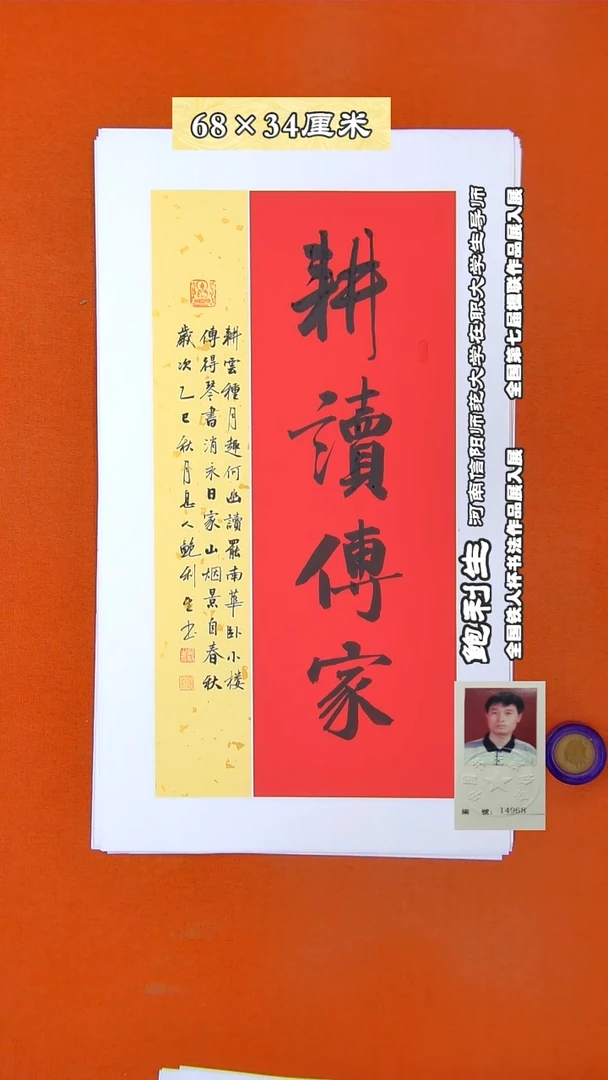 68×34厘米
耕讀傳家
耕雲種月趣何幽讀罷南華卧小樓
傳得琴書消永日家山烟景自春秋
歲次乙巳秋月息人鮑利生书
鲍利生 河南信阳师范大学在职大学生导师
全国铁人杯书法作品展入展 全国第七届楹联作品展入展
編 號：14968